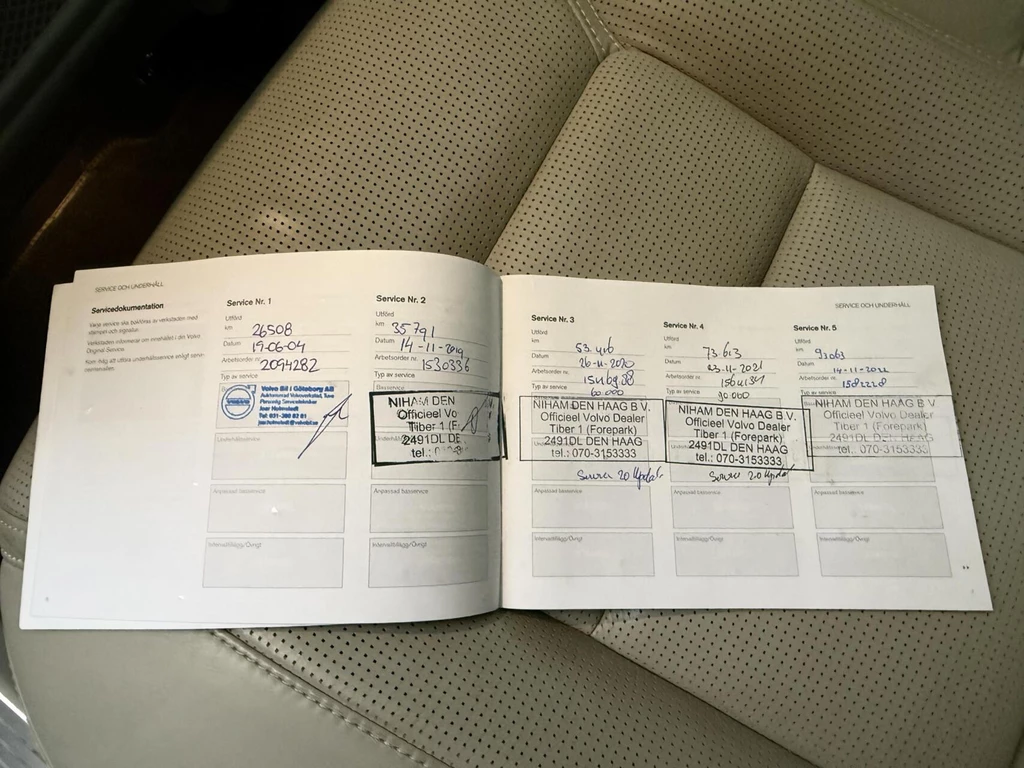 SERVICE OCH UNDERHÅLL
Servicedokumentation
Varje service ska bokföras av verkstaden med
stämpel och signatur.
Verkstaden informerar om innehållet i din Volvo
Original Service.
Kom ihåg att utföra underhållsservice enligt
Service Nr. 1
Utförd
km 26508
Datum 19-06-04
Arbetsorder nr. 2094282
Typ av service
Volvo Bil i Göteborg AB
Auktoriserad Volvoverkstad, Tuve
Personlig Servicetekniker
Tel: 031-
Service Nr. 2
Utförd
km 35791
Datum 14-11-2019
Arbetsorder nr. 1530336
Typ av service
Basservice
NIHAM DEN
Officieel Vo
Tiber 1 (F
2491DL DE
tel.:
Anpassad basservice
Intervalltillägg/Övrigt
SERVICE OCH UNDERHÅLL
Service Nr. 3
Utförd
km
Datum 26-11-2020
Arbetsorder nr.
Typ av service 60.000
NIHAM DEN HAAG B.V.
Officieel Volvo Dealer
Tiber 1 (Forepark)
2491DL DEN HAAG
tel.: 070-3153333
Anpassad basservice
Intervalltillägg/Övrigt
Service Nr. 4
Utförd
km 73613
Datum 23-11-2021
Arbetsorder nr.
Typ av service 90.000
NIHAM DEN HAAG B.V.
Officieel Volvo Dealer
Tiber 1 (Forepark)
2491DL DEN HAAG
tel.: 070-3153333
Anpassad basservice
Intervalltillägg/Övrigt
Service Nr. 5
Utförd
km 93063
Datum 14-11-2022
Arbetsorder nr. 1582228
Typ av service
NIHAM DEN HAAG B.V.
Officieel Volvo Dealer
Tiber 1 (Forepark)
2491DL DEN HAAG
tel.: 070-3153333
Anpassad basservice
Intervalltillägg/Övrigt